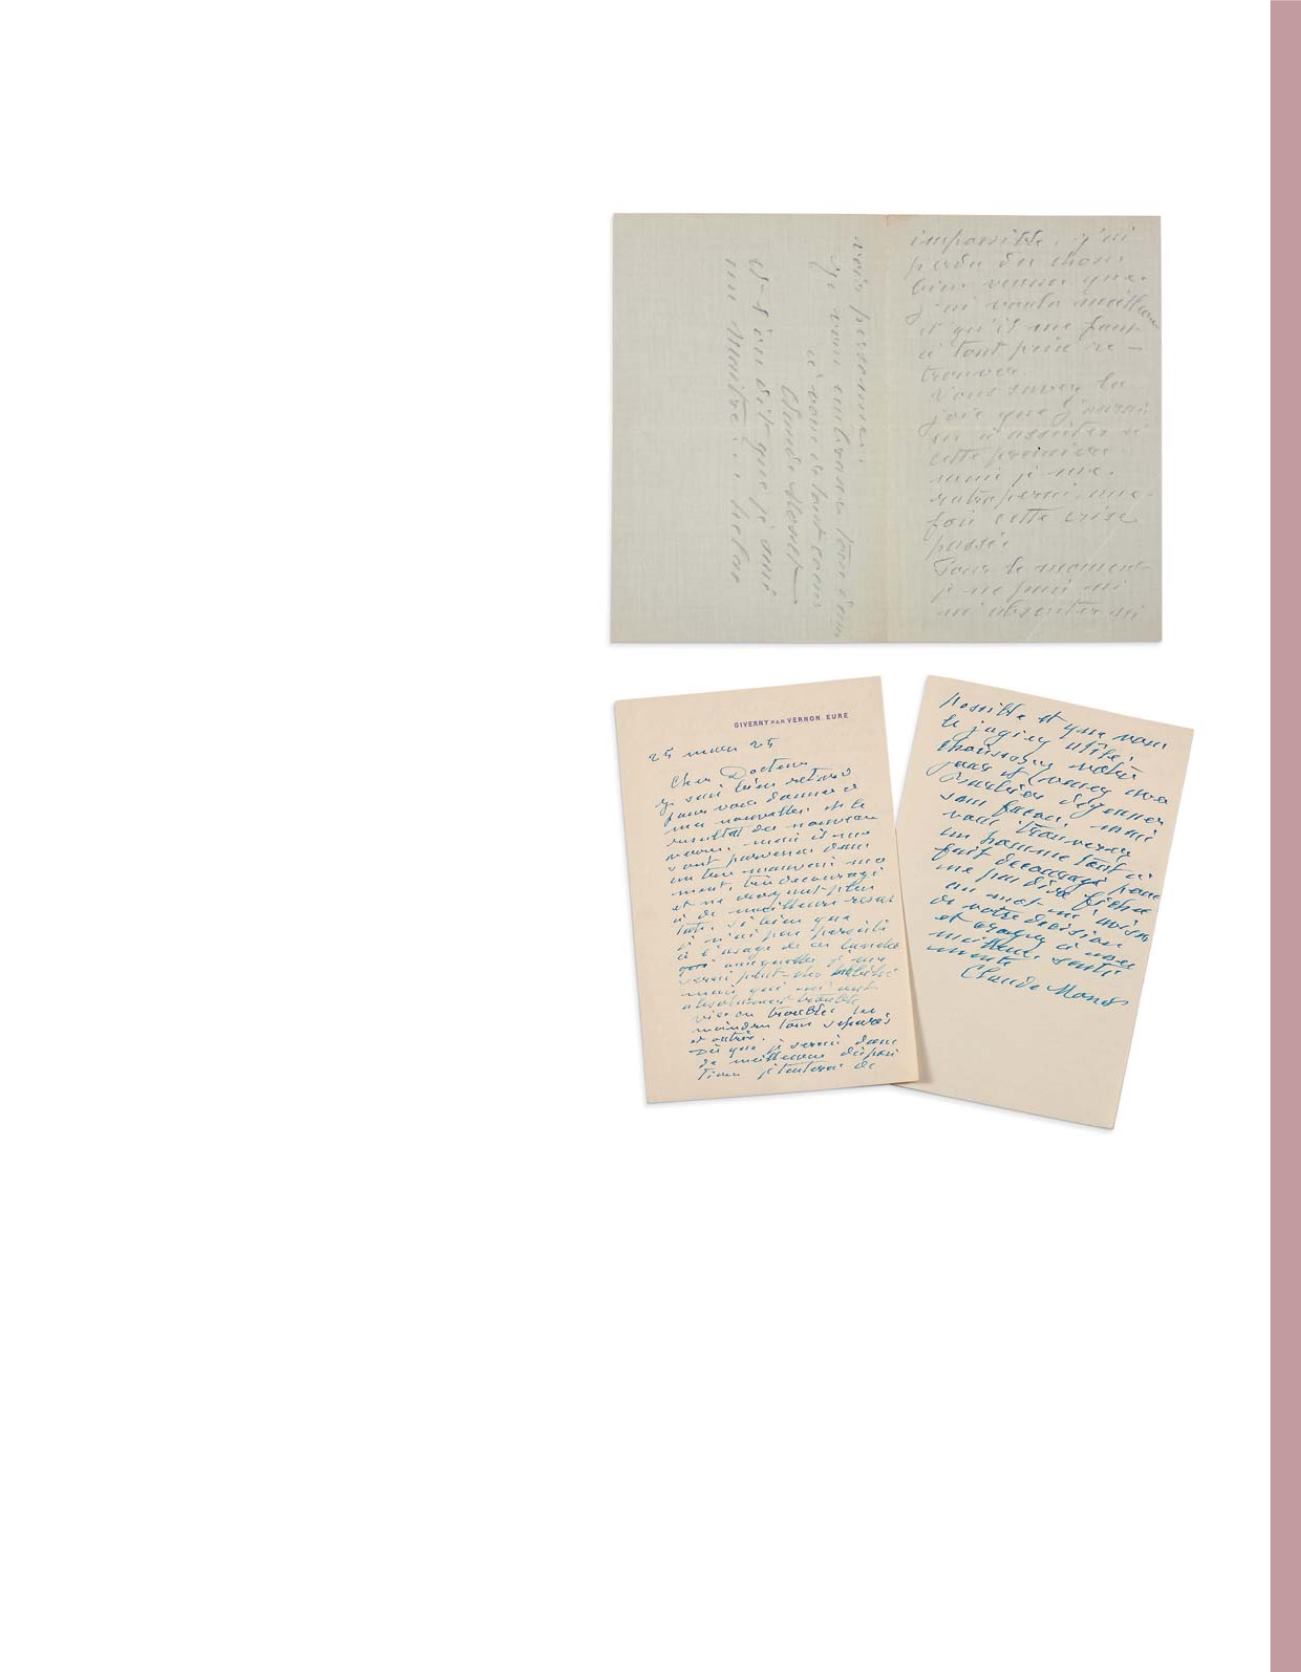 impossible, j'ai
perdu des choses
bien venues que
j'ai voulu meilleures
et qu'il me faut
à tout prix re-
trouver.
Vous savez la
joie que j'aurai
eu d'assister à
cette première
mais je me
rattraperai une
fois cette crise
passée
Pour le moment
je ne puis ni
m'absenter ni
voir personne.
Je vous embrasse tous deux
à vous de tout coeur
Claude Monet
et l'on dit que je suis
un Maître... helas
GIVERNY PAR VERNON. EURE
25 mars 25
Cher Docteur
je suis bien retard
pour vous donner de
mes nouvelles et le
resultat des nouveaux
verres. mais ils me
sont parvenus dans
un très mauvais mo
ment, très découragé
et ne croyant plus
à de meilleurs resul
tats. si bien que
je n'ai pas persisté
à l'usage de ces lunettes
auxquelles je me
serais peut-être habitué
mais qui m'ont
absolument troublé
vision troublée les
moindres tons separés
et outrés.
Dès que je serai dans
de meilleures disposi
tions je tenterai de
possible et que vous
le jugiez utile,
choisissez votre
jour et venez nous
déjeuner
sans façons mais
vous trouverez
un homme tout à
fait decouragé pour
ne pas dire fichu
un mot me
de votre decision
et croyez à mes
meilleurs senti
ments
Claude Monet